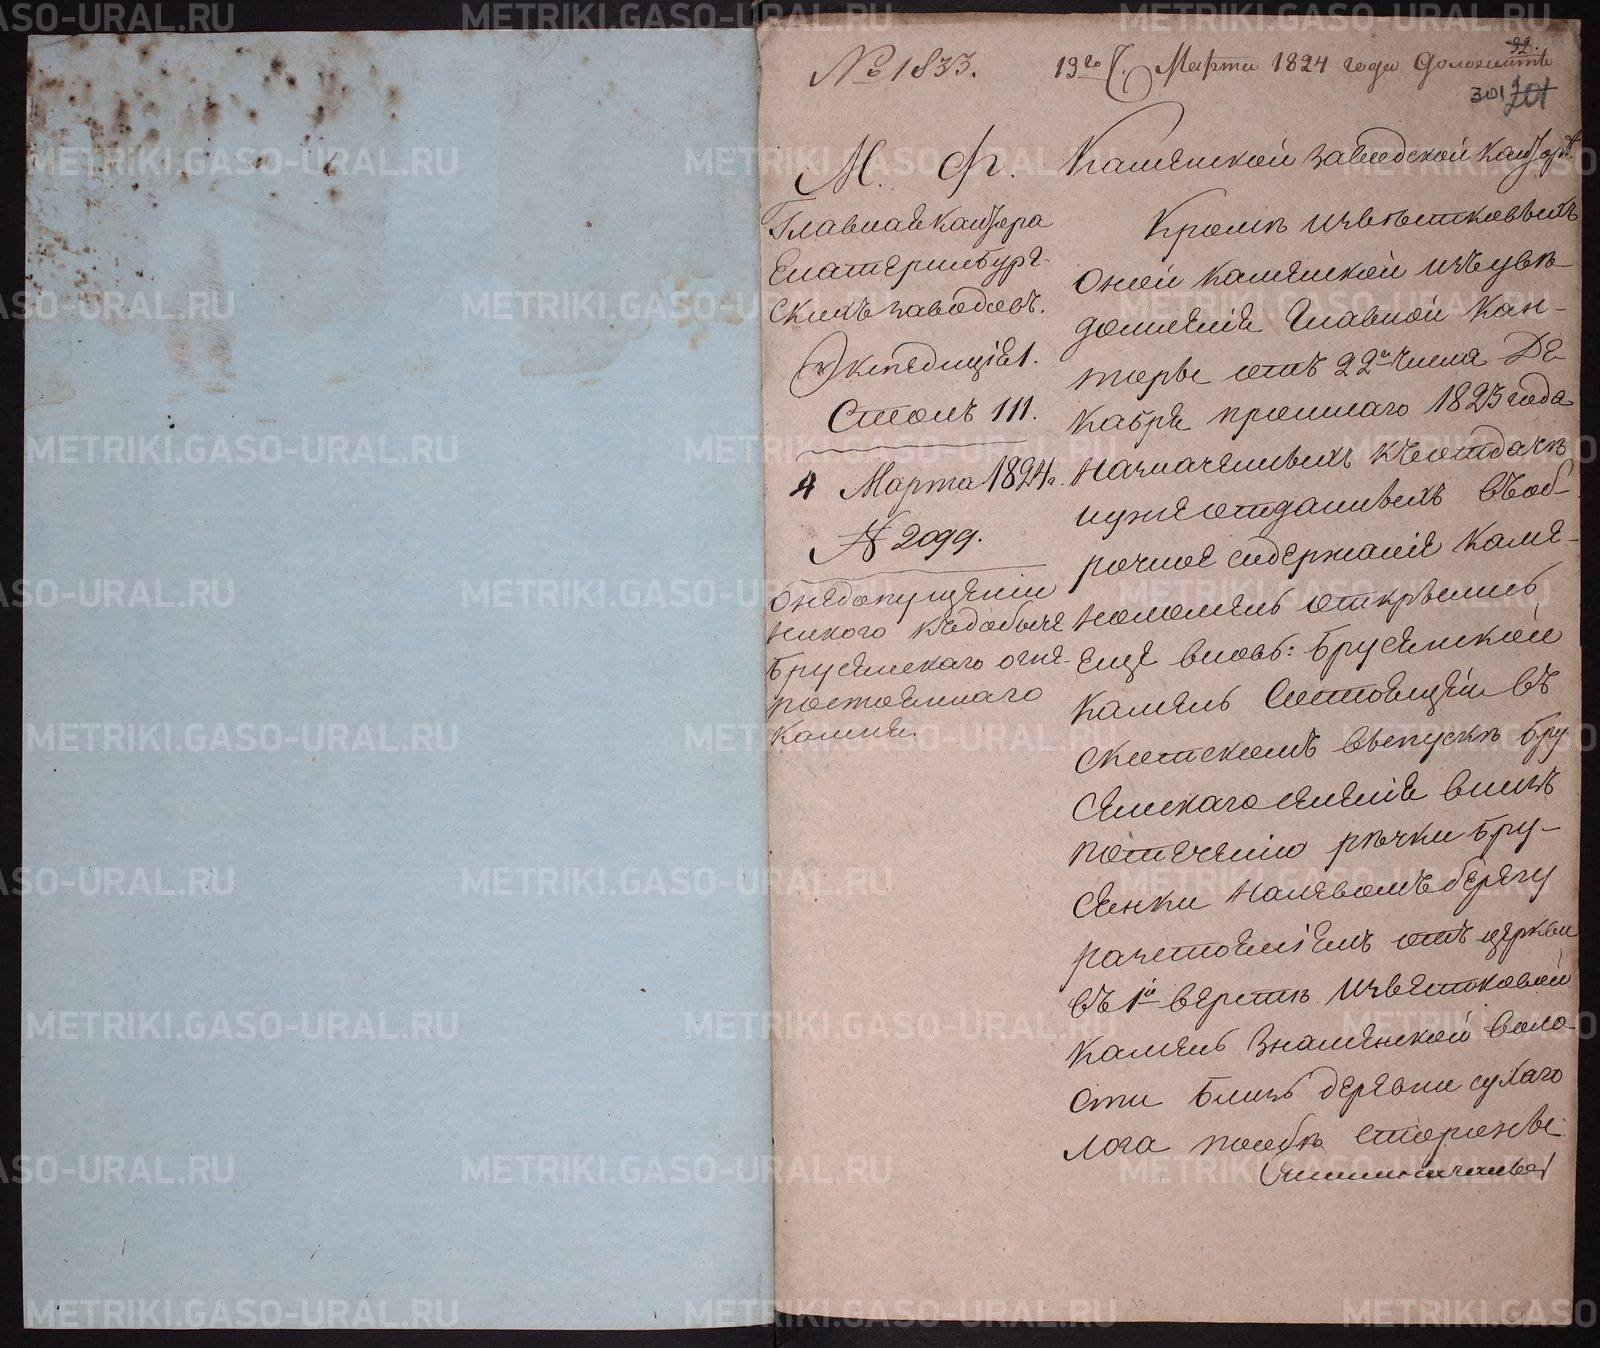 № 1833.
19го Марта 1824 года Доложить
32.
301 201
М. Ф.
Главная Кантора
Екатеринбург-
скихъ заводовъ.
Экспедиція 1.
Столъ III.
4 Марта 1824.
№ 2099.
о недопущеніи
никого къ добыче
Брусянскаго огне-
постояннаго
камня.
Каменской заводской Канторѣ
Кромѣ известковыхъ
оной Каменской изъ увѣ-
домленія Главной Кан-
торы отъ 22го числа Де-
кабря прошлаго 1823 года
назначенныхъ къ отдачѣ
и уже отданныхъ въ об-
рочное содержаніе каме-
ноломень открылись
еще вновь: Брусянской
камень состоящій въ
скотскомъ выпускѣ Бру-
сянскаго селенія внизъ
по теченію рѣчки Бру-
сянки на левомъ берегу
разстояніемъ отъ церкви
въ 1й верстѣ Известковой
камень Знаменской воло-
сти близь деревни сухаго
лога по обѣ стороны
METRIKI.GASO-URAL.RU